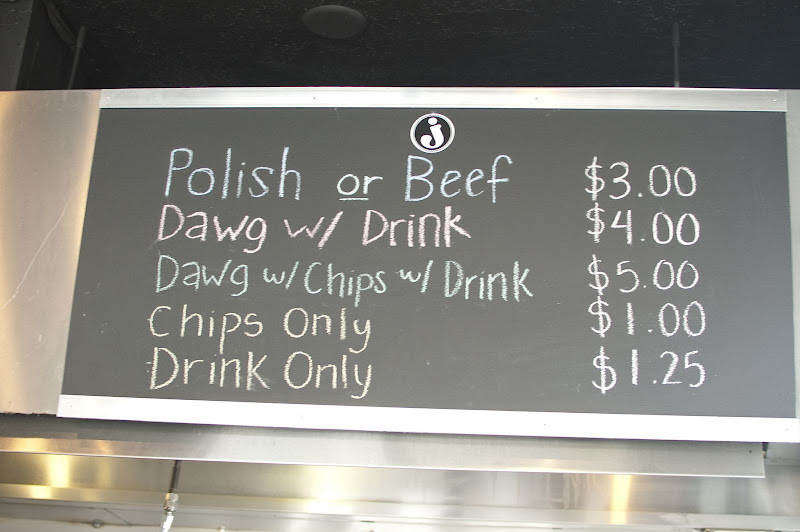 j
Polish or Beef $3.00
Dawg w/ Drink $4.00
Dawg w/ Chips w/ Drink $5.00
Chips Only $1.00
Drink Only $1.25